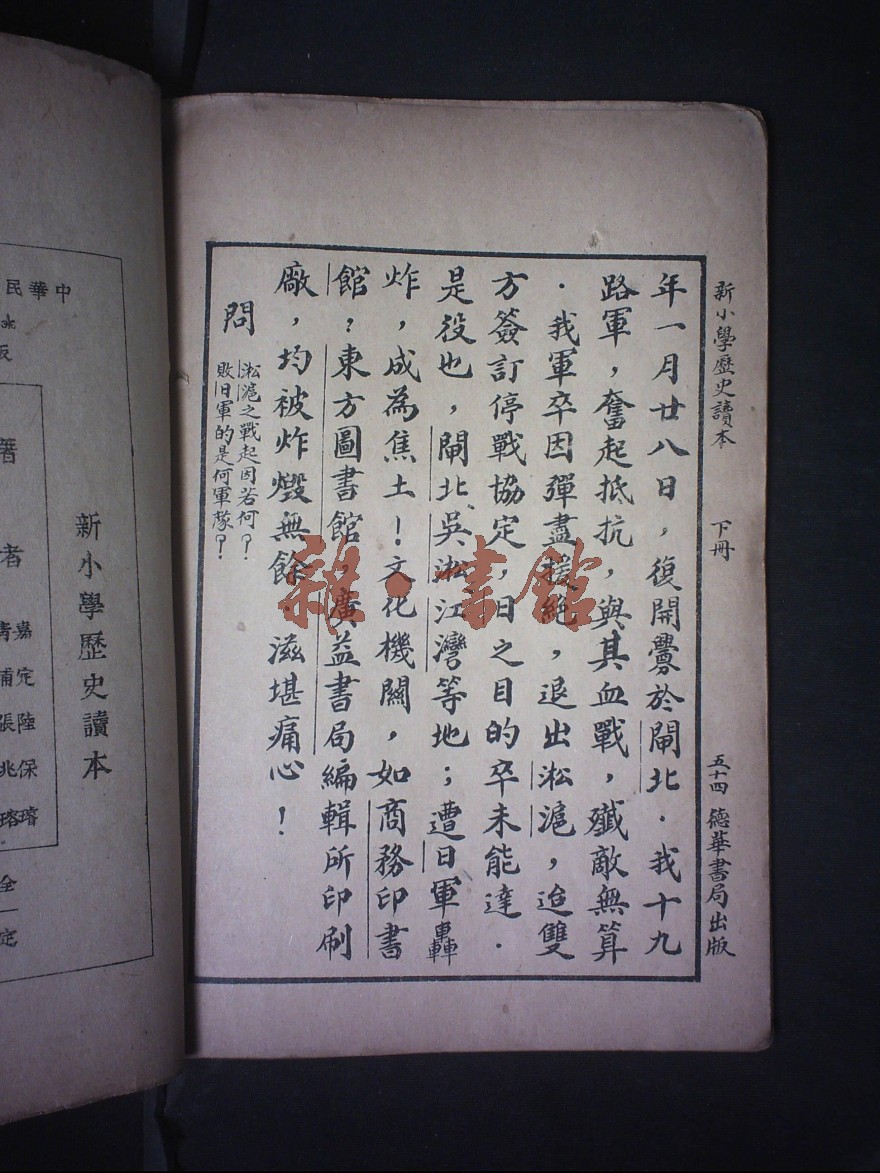 新小學歷史讀本 下冊 五十四 德華書局出版
年一月廿八日，復開釁於閘北．我十九
路軍，奮起抵抗，與其血戰，殲敵無算
．我軍卒因彈盡援絶，退出淞滬，迨雙
方簽訂停戰協定，日之目的卒未能達．
是役也，閘北吳淞江灣等地；遭日軍轟
炸，成為焦土！文化機關，如商務印書
館；東方圖書館，廣益書局編輯所印刷
廠，均被炸燬無餘，滋堪痛心！
問 淞滬之戰起因若何？
敗日軍的是何軍隊？
雜·書館
中華民
新小學歷史讀本
著者
嘉定陸保璿
青浦張兆瑢
全
定